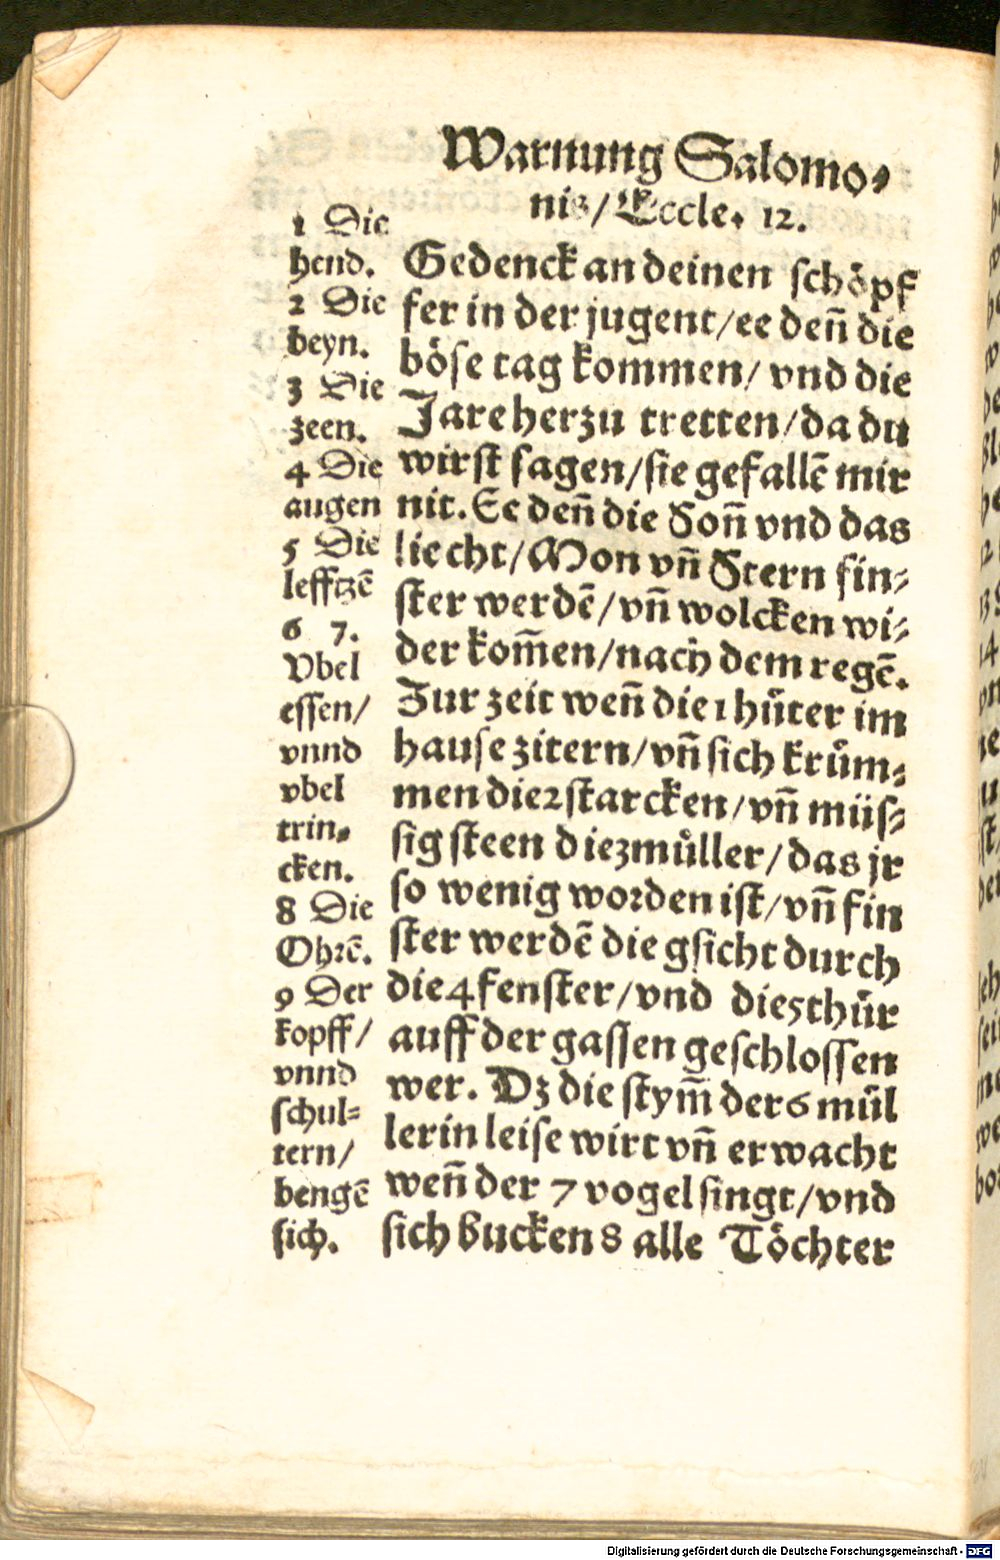 Warnung Salomo-
nis/Eccle. 12.
Gedenck an deinen schöpf
fer in der jugent/ee den̄ die
böse tag kommen/ vnd die
Jare herzu tretten/da du
wirst sagen/sie gefallē mir
nit. Ee den̄ die Son̄ vnd das
liecht/Mon vn̄ Stern fin-
ster werdē/vn̄ wolcken wi-
der kom̄en/nach dem regē.
Zur zeit wen̄ die 1 hüter im
hause zitern/vn̄ sich krüm-
men die 2 starcken/vn̄ müs-
sig steen die 3 müller/das jr
so wenig worden ist/vn̄ fin
ster werdē die gsicht durch
die 4 fenster/vnd die 5 thür
auff der gassen geschlossen
wer. Dz die stym̄ der 6 mül
lerin leise wirt vn̄ erwacht
wen̄ der 7 vogel singt/vnd
sich bucken 8 alle Töchter
1 Die
hend.
2 Die
beyn.
3 Die
zeen.
4 Die
augen
5 Die
lefftzē
6 7.
Vbel
essen/
vnnd
vbel
trin-
cken.
8 Die
Ohrē.
9 Der
kopff/
vnnd
schul-
tern/
bengē
sich.
Digitalisierung gefördert durch die Deutsche Forschungsgemeinschaft - DFG